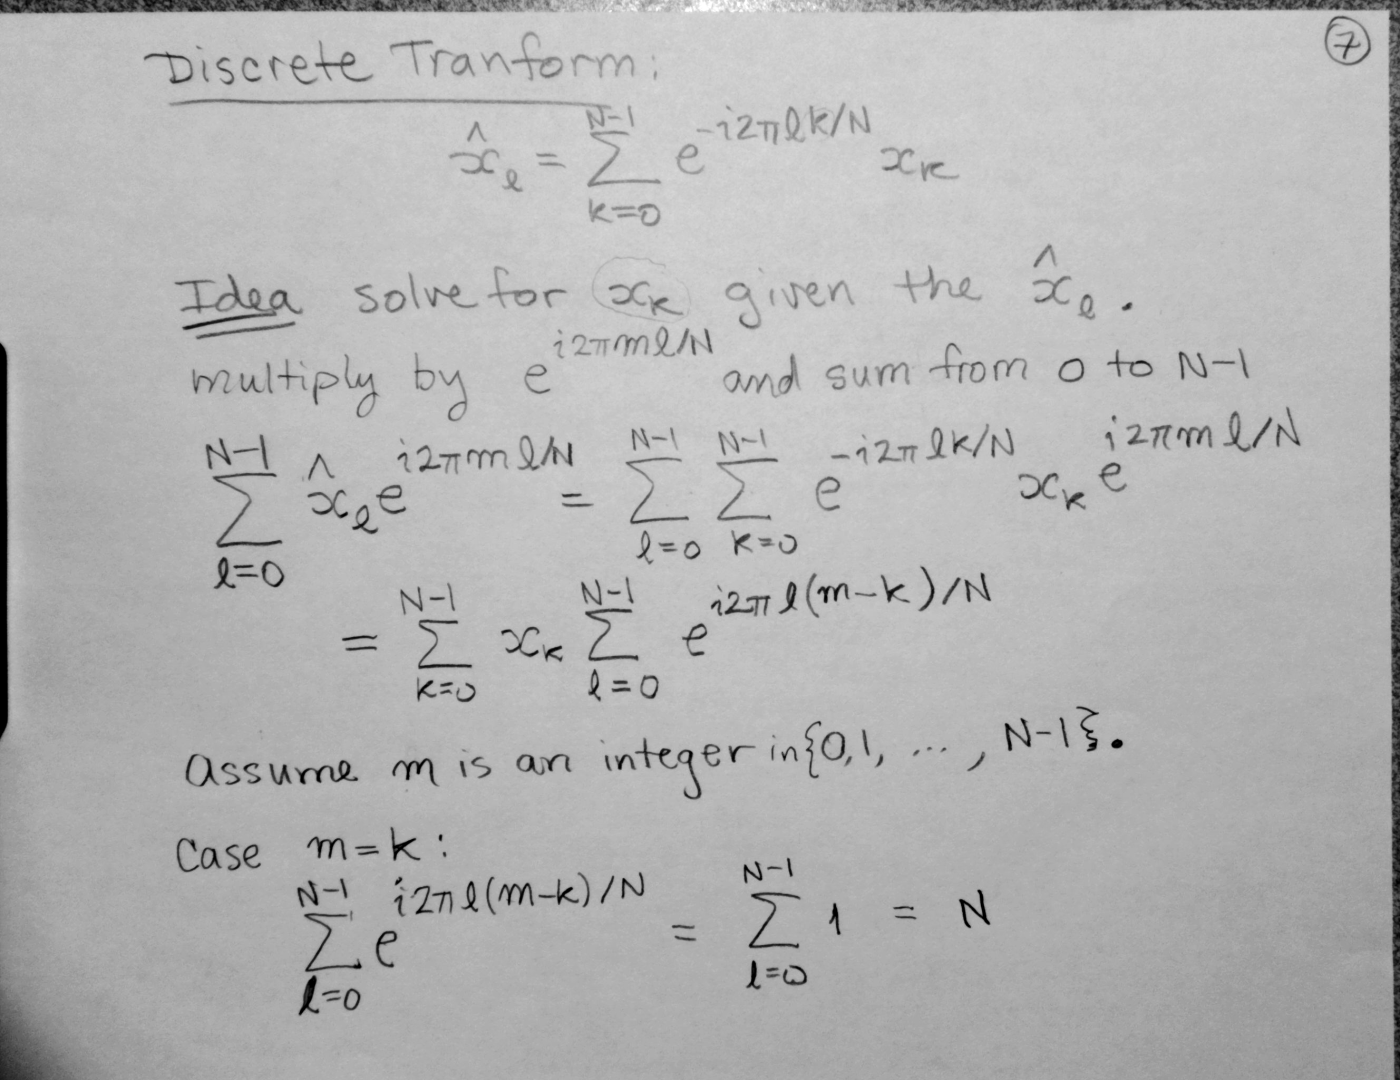 ⑦
Discrete Tranform:
x̂_ℓ = Σ_{k=0}^{N-1} e^{-i2πℓk/N} x_k
Idea solve for x_k given the x̂_ℓ.
multiply by e^{i2πmℓ/N} and sum from 0 to N-1
Σ_{ℓ=0}^{N-1} x̂_ℓ e^{i2πmℓ/N} = Σ_{ℓ=0}^{N-1} Σ_{k=0}^{N-1} e^{-i2πℓk/N} x_k e^{i2πmℓ/N}
= Σ_{k=0}^{N-1} x_k Σ_{ℓ=0}^{N-1} e^{i2πℓ(m-k)/N}
Assume m is an integer in {0,1, ..., N-1}.
Case m=k:
Σ_{ℓ=0}^{N-1} e^{i2πℓ(m-k)/N} = Σ_{ℓ=0}^{N-1} 1 = N